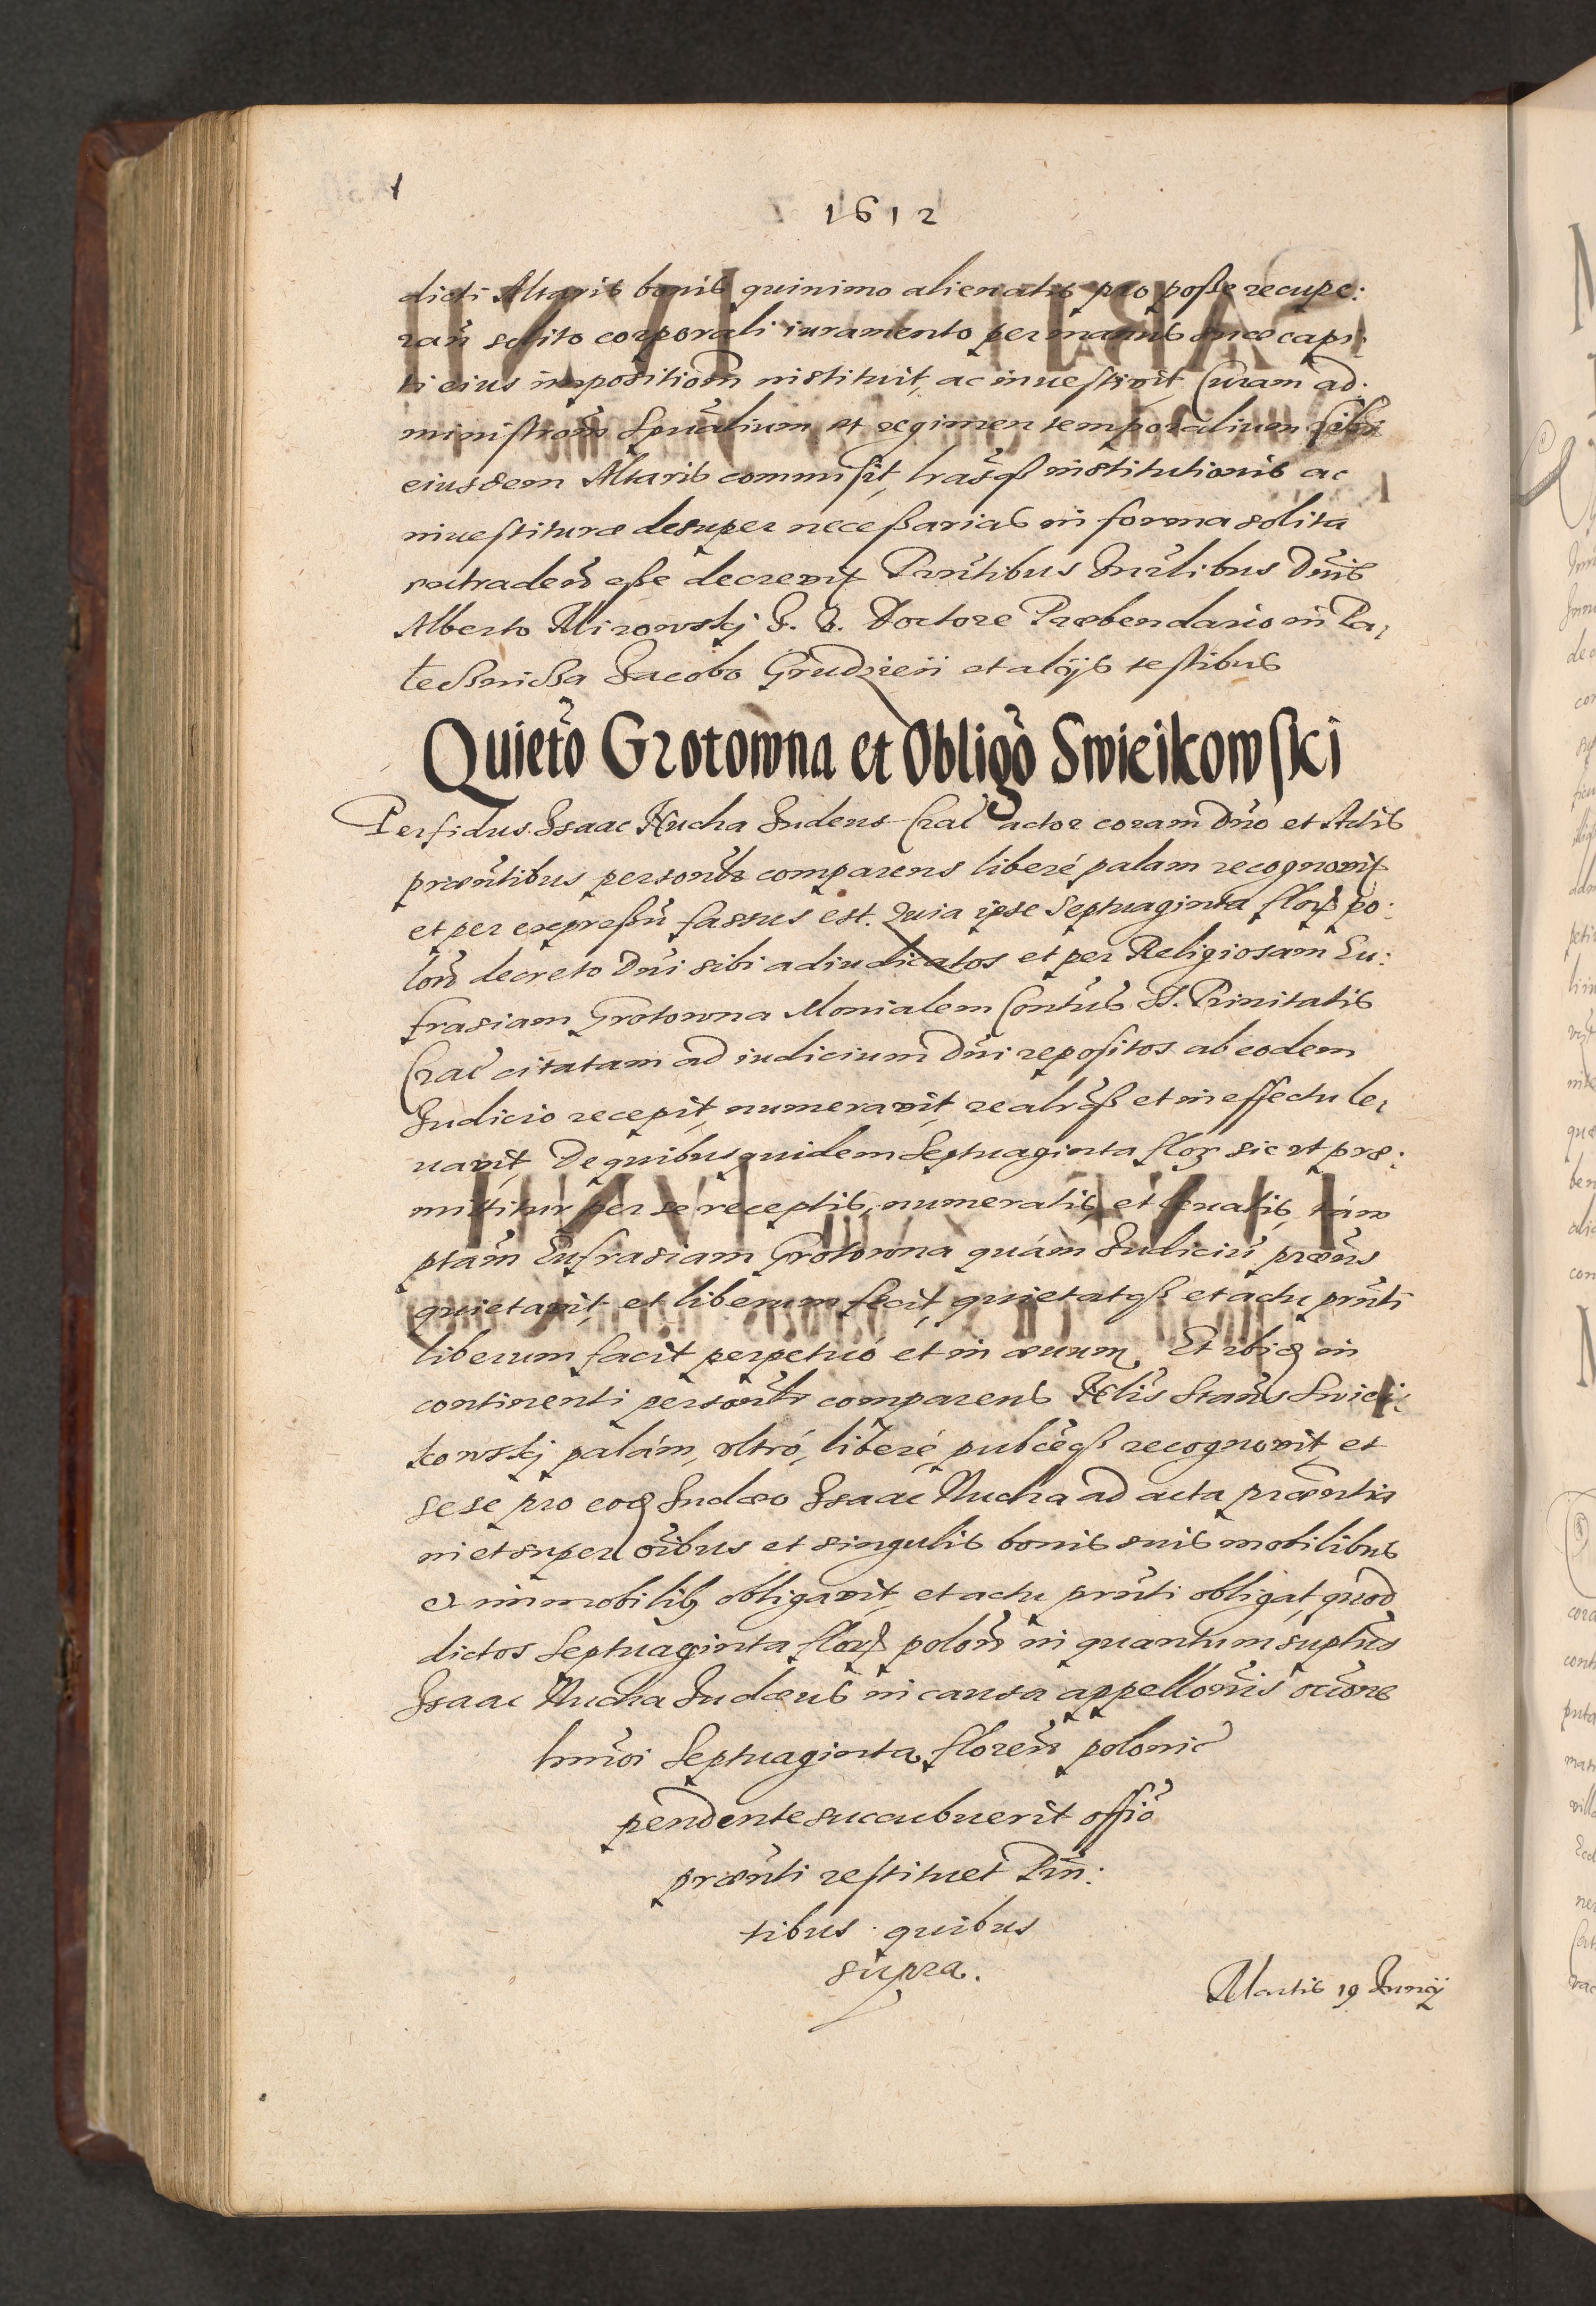 1612
dicti Altaris bonis quinimo alienatis pro posse recupe:
ran̄ solito corporali iuramento per manus suae capi:
ti eius impositiom̄ instituit, ac inuestivit, Curam ad:
ministrom̄ Spūalium et regimen temporalium sibi
eiusdem Altaris commisit, lrasq̄ institutionis ac
inuestiturae desuper necessarias in forma solita
extraden̄ esse decrevit Pntibus Dnis
Alberto Mirowskj Doctore Praebendario in Pa,
Jacobo Grudzień et alijs testibus
Quieto Grotowna et Obligo Swieikowski
Perfidus Isaac Nucha Iudeus Crac̄ actor coram Dn̄o et Actis
praen̄tibus personlr comparens liberé palam recognovit
et per expressū fassus est. Quia ipse Septuaginta flor po:
lon̄ decreto Dn̄i sibi adiudicatos et per Religiosam Eu:
frasiam Grotowna Monialem Conuūs S. Trinitatis
Crac̄ citatam ad iudicium Dn̄i repositos ab eodem
Iudicio recepit, numeravit, realrq̄ et in effectu le,
uavit, De quibus quidem Septuaginta flor sic ut prae:
mittitur per se receptis, numeratis, et leuatis, tám
ptam̄ Eufrasiam Grotowna quám Iudiciū praen̄s
quietavit, et liberum fecit, quietatq̄ et actu pn̄ti
liberum facit perpetuó et in aeuum, Et ibid in
continenti personlr comparens Nblis Stan̄s Swiei:
kowskj palám, ultró, liberé, publceq̄ recognovit, et
sese pro eod Iudaeo Isaac Nucha ad acta praen̄tia
in et super oībus et singulis bonis suis mobilibus
et immobilib obligavit, et actu pn̄ti obligat, quod
dictos Septuaginta flor polon̄ in quantum suptūs
Isaac Nucha Iudaeus in causa appellonis ocōne
hm̄oi Septuaginta floren̄ polonic̄
pendente succubuerit offiō
praen̄ti restituet Pn̄:
tibus quibus
supra.
Martis 19 Iunij